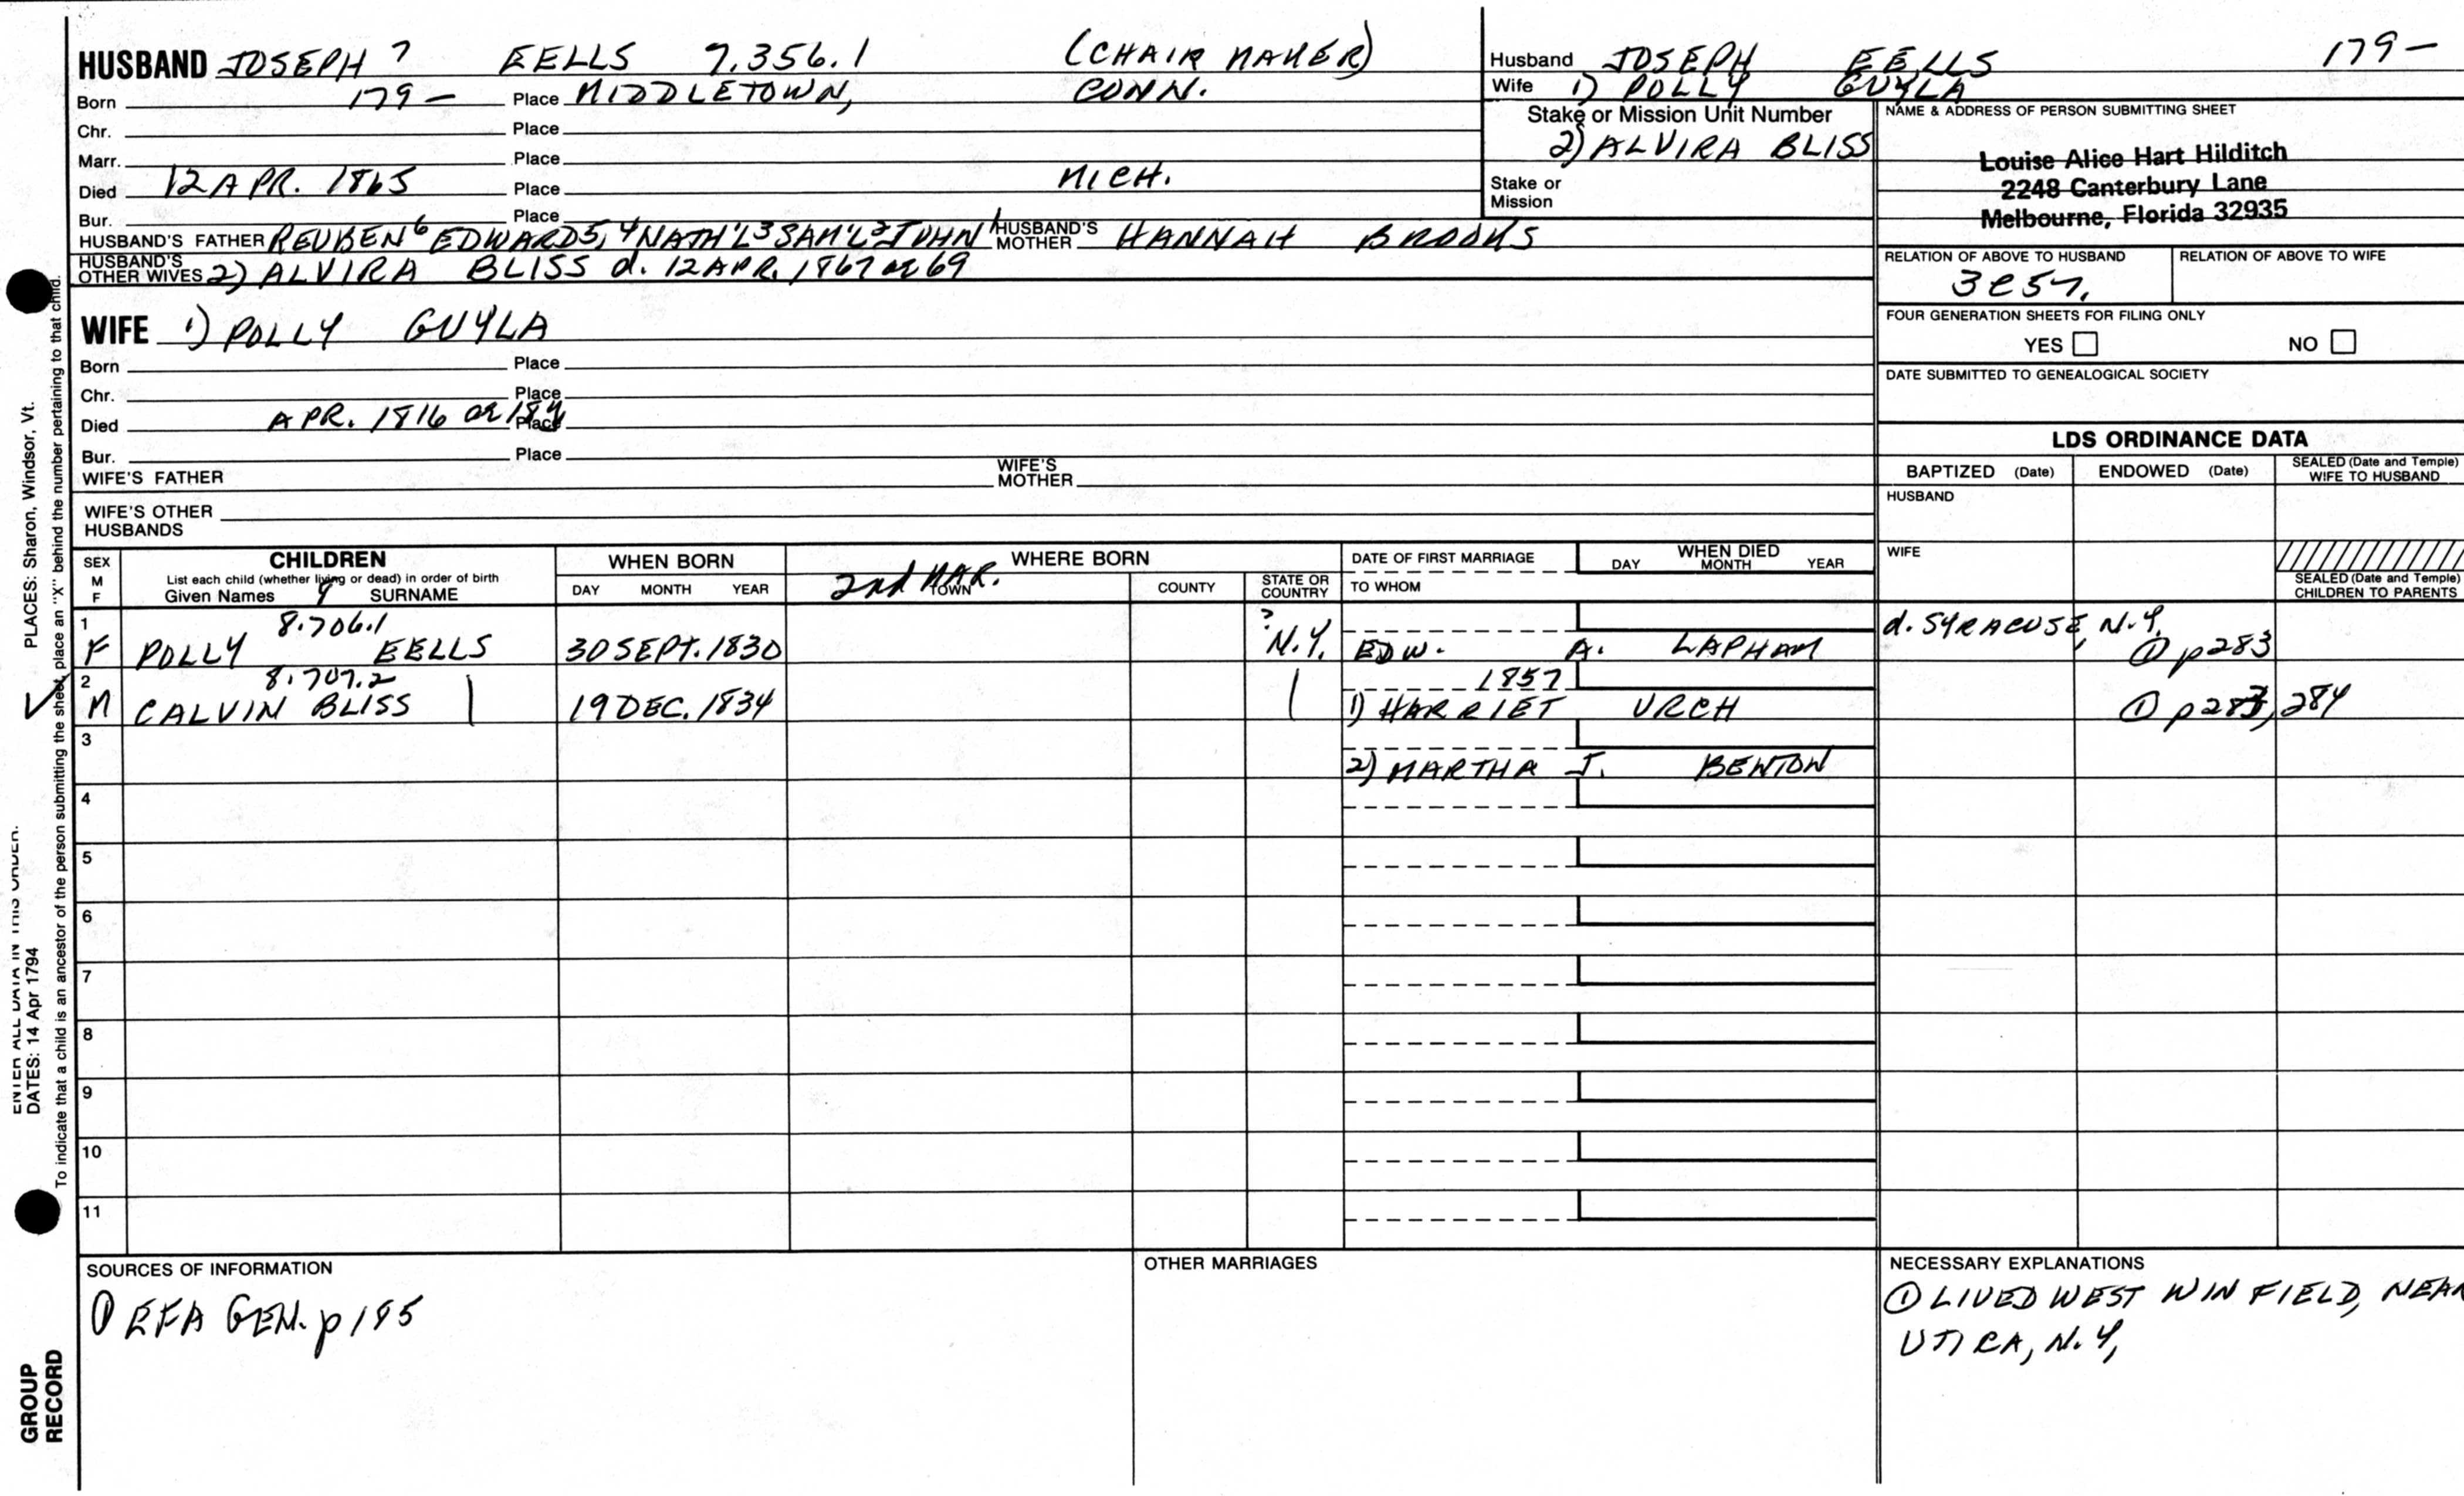 HUSBAND JOSEPH 7 EELLS 7.356.1 (CHAIR MAKER)
Born 179- Place MIDDLETOWN, CONN.
Chr. Place
Marr. Place
Died 12 APR. 1865 Place MICH.
Bur. Place
HUSBAND'S FATHER REUBEN6 EDWARD5,4 NATH'L3 SAM'L2 JOHN1 HUSBAND'S MOTHER HANNAH BROOKS
HUSBAND'S OTHER WIVES 2) ALVIRA BLISS d. 12 APR. 1867 or 69
Husband JOSEPH EELLS 179-
Wife 1) POLLY GUYLA
Stake or Mission Unit Number
2) ALVIRA BLISS
Stake or
Mission
NAME & ADDRESS OF PERSON SUBMITTING SHEET
Louise Alice Hart Hilditch
2248 Canterbury Lane
Melbourne, Florida 32935
RELATION OF ABOVE TO HUSBAND RELATION OF ABOVE TO WIFE
3c5r.
FOUR GENERATION SHEETS FOR FILING ONLY
YES NO
DATE SUBMITTED TO GENEALOGICAL SOCIETY
WIFE 1) POLLY GUYLA
Born Place
Chr. Place
Died APR. 1816 or Place
Bur. Place
WIFE'S FATHER WIFE'S MOTHER
WIFE'S OTHER
HUSBANDS
LDS ORDINANCE DATA
BAPTIZED (Date) ENDOWED (Date) SEALED (Date and Temple) WIFE TO HUSBAND
HUSBAND
WIFE
SEALED (Date and Temple)
CHILDREN TO PARENTS
SEX
M
F
CHILDREN
List each child (whether living or dead) in order of birth
Given Names SURNAME
WHEN BORN
DAY MONTH YEAR
WHERE BORN
2nd MAR.
TOWN COUNTY STATE OR COUNTRY
DATE OF FIRST MARRIAGE
TO WHOM
WHEN DIED
DAY MONTH YEAR
1 8.706.1 ? d. SYRACUSE, N.Y.
F POLLY EELLS 30 SEPT. 1830 N.Y. EDW. A. LAPHAM ① p283
2 8.707.2 1857
M CALVIN BLISS 19 DEC. 1834 1) HARRIET URCH ① p283, 284
3 2) MARTHA J. BENTON
4
5
6
7
8
9
10
11
SOURCES OF INFORMATION
① EFA GEN. p195
OTHER MARRIAGES
NECESSARY EXPLANATIONS
① LIVED WEST WINFIELD, NEAR
UTICA, N.Y.
PLACES: Sharon, Windsor, Vt.
To indicate that a child is an ancestor of the person submitting the sheet, place an "X" behind the number pertaining to that child.
ENTER ALL DATA IN THIS ORDER.
DATES: 14 Apr 1794
GROUP
RECORD